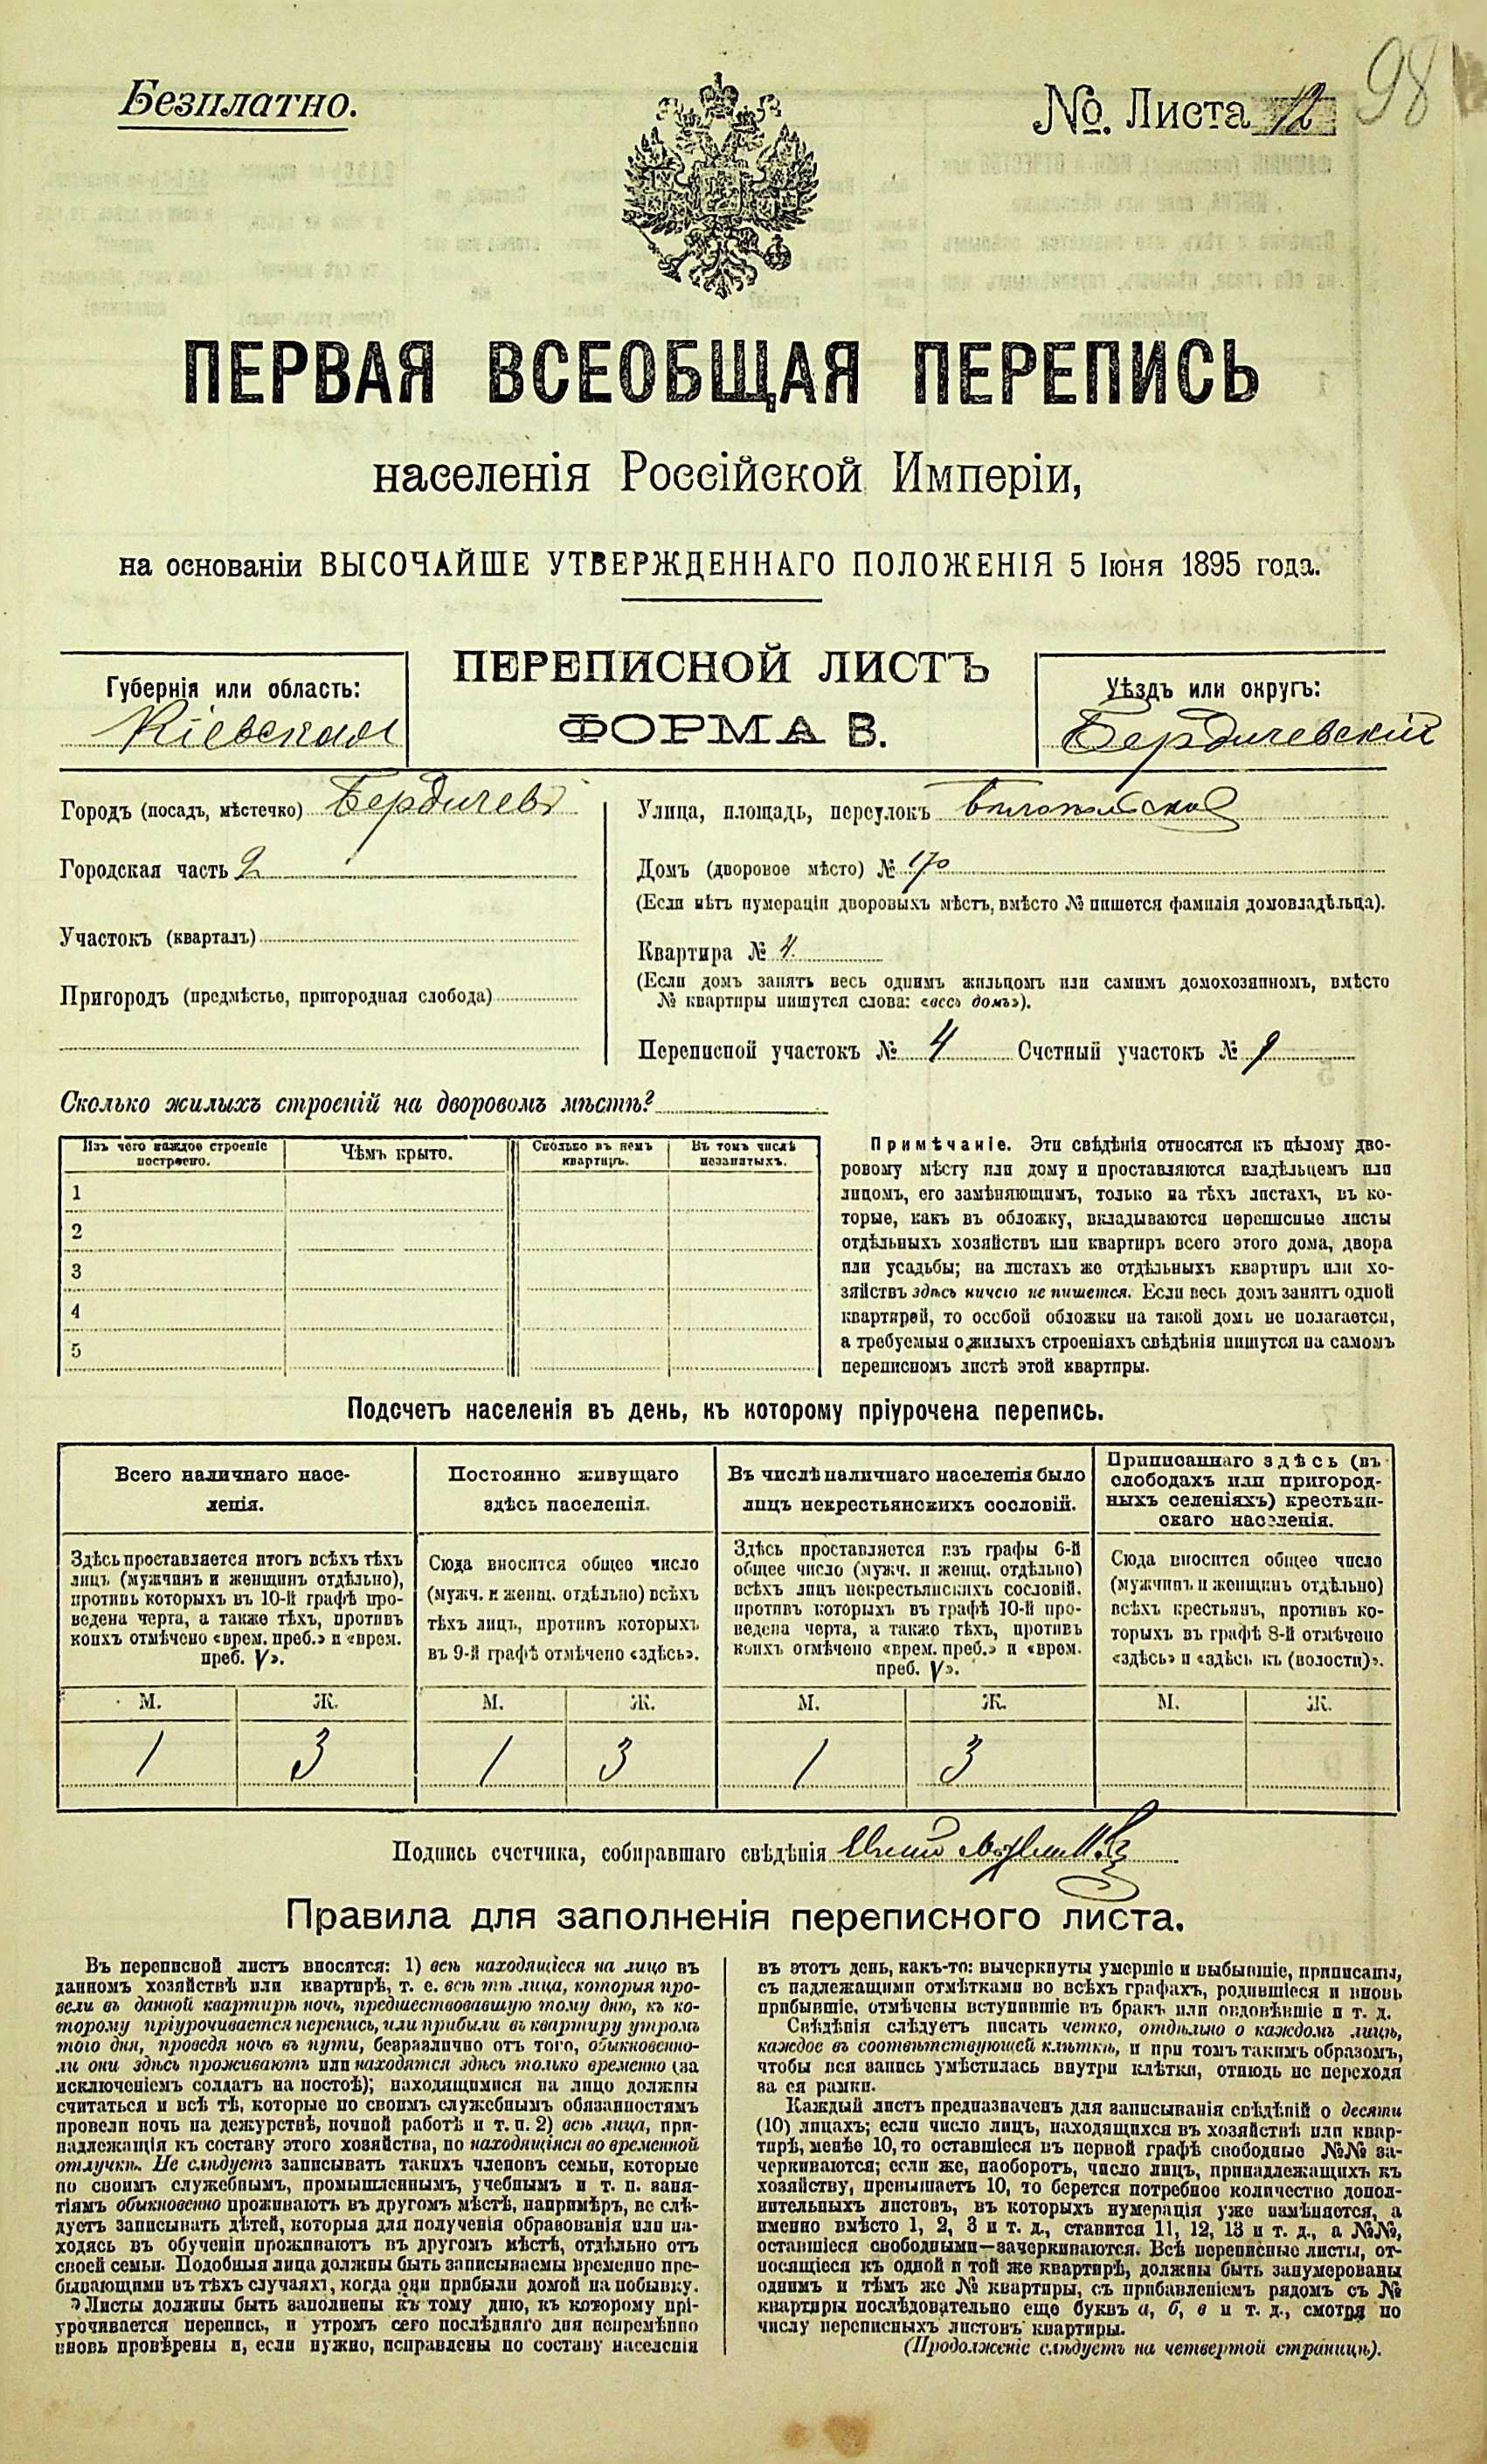 Безплатно.
№. Листа 12
98
ПЕРВАЯ ВСЕОБЩАЯ ПЕРЕПИСЬ
населенія Россійской Имперіи,
на основаніи ВЫСОЧАЙШЕ УТВЕРЖДЕННАГО ПОЛОЖЕНІЯ 5 Іюня 1895 года.
ПЕРЕПИСНОЙ ЛИСТЪ
ФОРМА В.
Губернія или область:
Кіевская
Уѣздъ или округъ:
Бердичевскій
Городъ (посадъ, мѣстечко) Бердичевъ
Городская часть 2
Участокъ (кварталъ)
Пригородъ (предмѣстье, пригородная слобода)
Улица, площадь, переулокъ
Домъ (дворовое мѣсто) № 170
(Если нѣтъ нумераціи дворовыхъ мѣстъ, вмѣсто № пишется фамилія домовладѣльца).
Квартира № 4
(Если домъ занятъ весь однимъ жильцомъ или самимъ домохозяиномъ, вмѣсто
№ квартиры пишутся слова: «весь домъ»).
Переписной участокъ № 4 Счетный участокъ № 9
Сколько жилыхъ строеній на дворовомъ мѣстѣ?
Изъ чего каждое строеніе построено.
Чѣмъ крыто.
Сколько въ немъ квартиръ.
Въ томъ числѣ незанятыхъ.
1
2
3
4
5
Примѣчаніе. Эти свѣдѣнія относятся къ цѣлому дво-
ровому мѣсту или дому и проставляются владѣльцемъ или
лицомъ, его замѣняющимъ, только на тѣхъ листахъ, въ ко-
торые, какъ въ обложку, вкладываются переписные листы
отдѣльныхъ хозяйствъ или квартиръ всего этого дома, двора
или усадьбы; на листахъ же отдѣльныхъ квартиръ или хо-
зяйствъ здѣсь ничего не пишется. Если весь домъ занятъ одной
квартирой, то особой обложки на такой домъ не полагается,
а требуемыя о жилыхъ строеніяхъ свѣдѣнія пишутся на самомъ
переписномъ листѣ этой квартиры.
Подсчетъ населенія въ день, къ которому пріурочена перепись.
Всего наличнаго насе-
ленія.
Здѣсь проставляется итогъ всѣхъ тѣхъ
лицъ (мужчинъ и женщинъ отдѣльно),
противъ которыхъ въ 10-й графѣ про-
ведена черта, а также тѣхъ, противъ
коихъ отмѣчено «врем. преб.» и «врем.
преб. V».
М. Ж.
1 3
Постоянно живущаго
здѣсь населенія.
Сюда вносится общее число
(мужч. и женщ. отдѣльно) всѣхъ
тѣхъ лицъ, противъ которыхъ
въ 9-й графѣ отмѣчено «здѣсь».
М. Ж.
1 3
Въ числѣ наличнаго населенія было
лицъ некрестьянскихъ сословій.
Здѣсь проставляется изъ графы 6-й
общее число (мужч. и женщ. отдѣльно)
всѣхъ лицъ некрестьянскихъ сословій,
противъ которыхъ въ графѣ 10-й про-
ведена черта, а также тѣхъ, противъ
коихъ отмѣчено «врем. преб.» и «врем.
преб. V».
М. Ж.
1 3
Приписаннаго здѣсь (въ
слободахъ или пригород-
ныхъ селеніяхъ) крестьян-
скаго населенія.
Сюда вносится общее число
(мужчинъ и женщинъ отдѣльно)
всѣхъ крестьянъ, противъ ко-
торыхъ въ графѣ 8-й отмѣчено
«здѣсь» и «здѣсь къ (волости)».
М. Ж.
Подпись счетчика, собиравшаго свѣдѣнія
Правила для заполненія переписного листа.
Въ переписной листъ вносятся: 1) всѣ находящіеся на лицо въ
данномъ хозяйствѣ или квартирѣ, т. е. всѣ тѣ лица, которыя про-
вели въ данной квартирѣ ночь, предшествовавшую тому дню, къ ко-
торому пріурочивается перепись, или прибыли въ квартиру утромъ
того дня, проведя ночь въ пути, безразлично отъ того, обыкновенно-
ли они здѣсь проживаютъ или находятся здѣсь только временно (за
исключеніемъ солдатъ на постоѣ); находящимися на лицо должны
считаться и всѣ тѣ, которые по своимъ служебнымъ обязанностямъ
провели ночь на дежурствѣ, ночной работѣ и т. п. 2) всѣ лица, при-
надлежащія къ составу этого хозяйства, но находящіяся во временной
отлучкѣ. Не слѣдуетъ записывать такихъ членовъ семьи, которые
по своимъ служебнымъ, промышленнымъ, учебнымъ и т. п. заня-
тіямъ обыкновенно проживаютъ въ другомъ мѣстѣ, напримѣръ, не слѣ-
дуетъ записывать дѣтей, которыя для полученія образованія или на-
ходясь въ обученіи проживаютъ въ другомъ мѣстѣ, отдѣльно отъ
своей семьи. Подобныя лица должны быть записываемы временно пре-
бывающими въ тѣхъ случаяхъ, когда они прибыли домой на побывку.
Листы должны быть заполнены къ тому дню, къ которому прі-
урочивается перепись, и утромъ сего послѣдняго дня непремѣнно
вновь провѣрены и, если нужно, исправлены по составу населенія
въ этотъ день, какъ-то: вычеркнуты умершіе и выбывшіе, приписаны,
съ надлежащими отмѣтками во всѣхъ графахъ, родившіеся и вновь
прибывшіе, отмѣчены вступившіе въ бракъ или овдовѣвшіе и т. д.
Свѣдѣнія слѣдуетъ писать четко, отдѣльно о каждомъ лицѣ,
каждое въ соотвѣтствующей клѣткѣ, и при томъ такимъ образомъ,
чтобы вся запись умѣстилась внутри клѣтки, отнюдь не переходя
за ея рамки.
Каждый листъ предназначенъ для записыванія свѣдѣній о десяти
(10) лицахъ; если число лицъ, находящихся въ хозяйствѣ или квар-
тирѣ, менѣе 10, то оставшіеся въ первой графѣ свободные №№ за-
черкиваются; если же, наоборотъ, число лицъ, принадлежащихъ къ
хозяйству, превышаетъ 10, то берется потребное количество допол-
нительныхъ листовъ, въ которыхъ нумерація уже измѣняется, а
именно вмѣсто 1, 2, 3 и т. д., ставится 11, 12, 13 и т. д., а №№,
оставшіеся свободными—зачеркиваются. Всѣ переписные листы, от-
носящіеся къ одной и той же квартирѣ, должны быть занумерованы
однимъ и тѣмъ же № квартиры, съ прибавленіемъ рядомъ съ №
квартиры послѣдовательно еще буквъ а, б, в и т. д., смотря по
числу переписныхъ листовъ квартиры.
(Продолженіе слѣдуетъ на четвертой страницѣ).